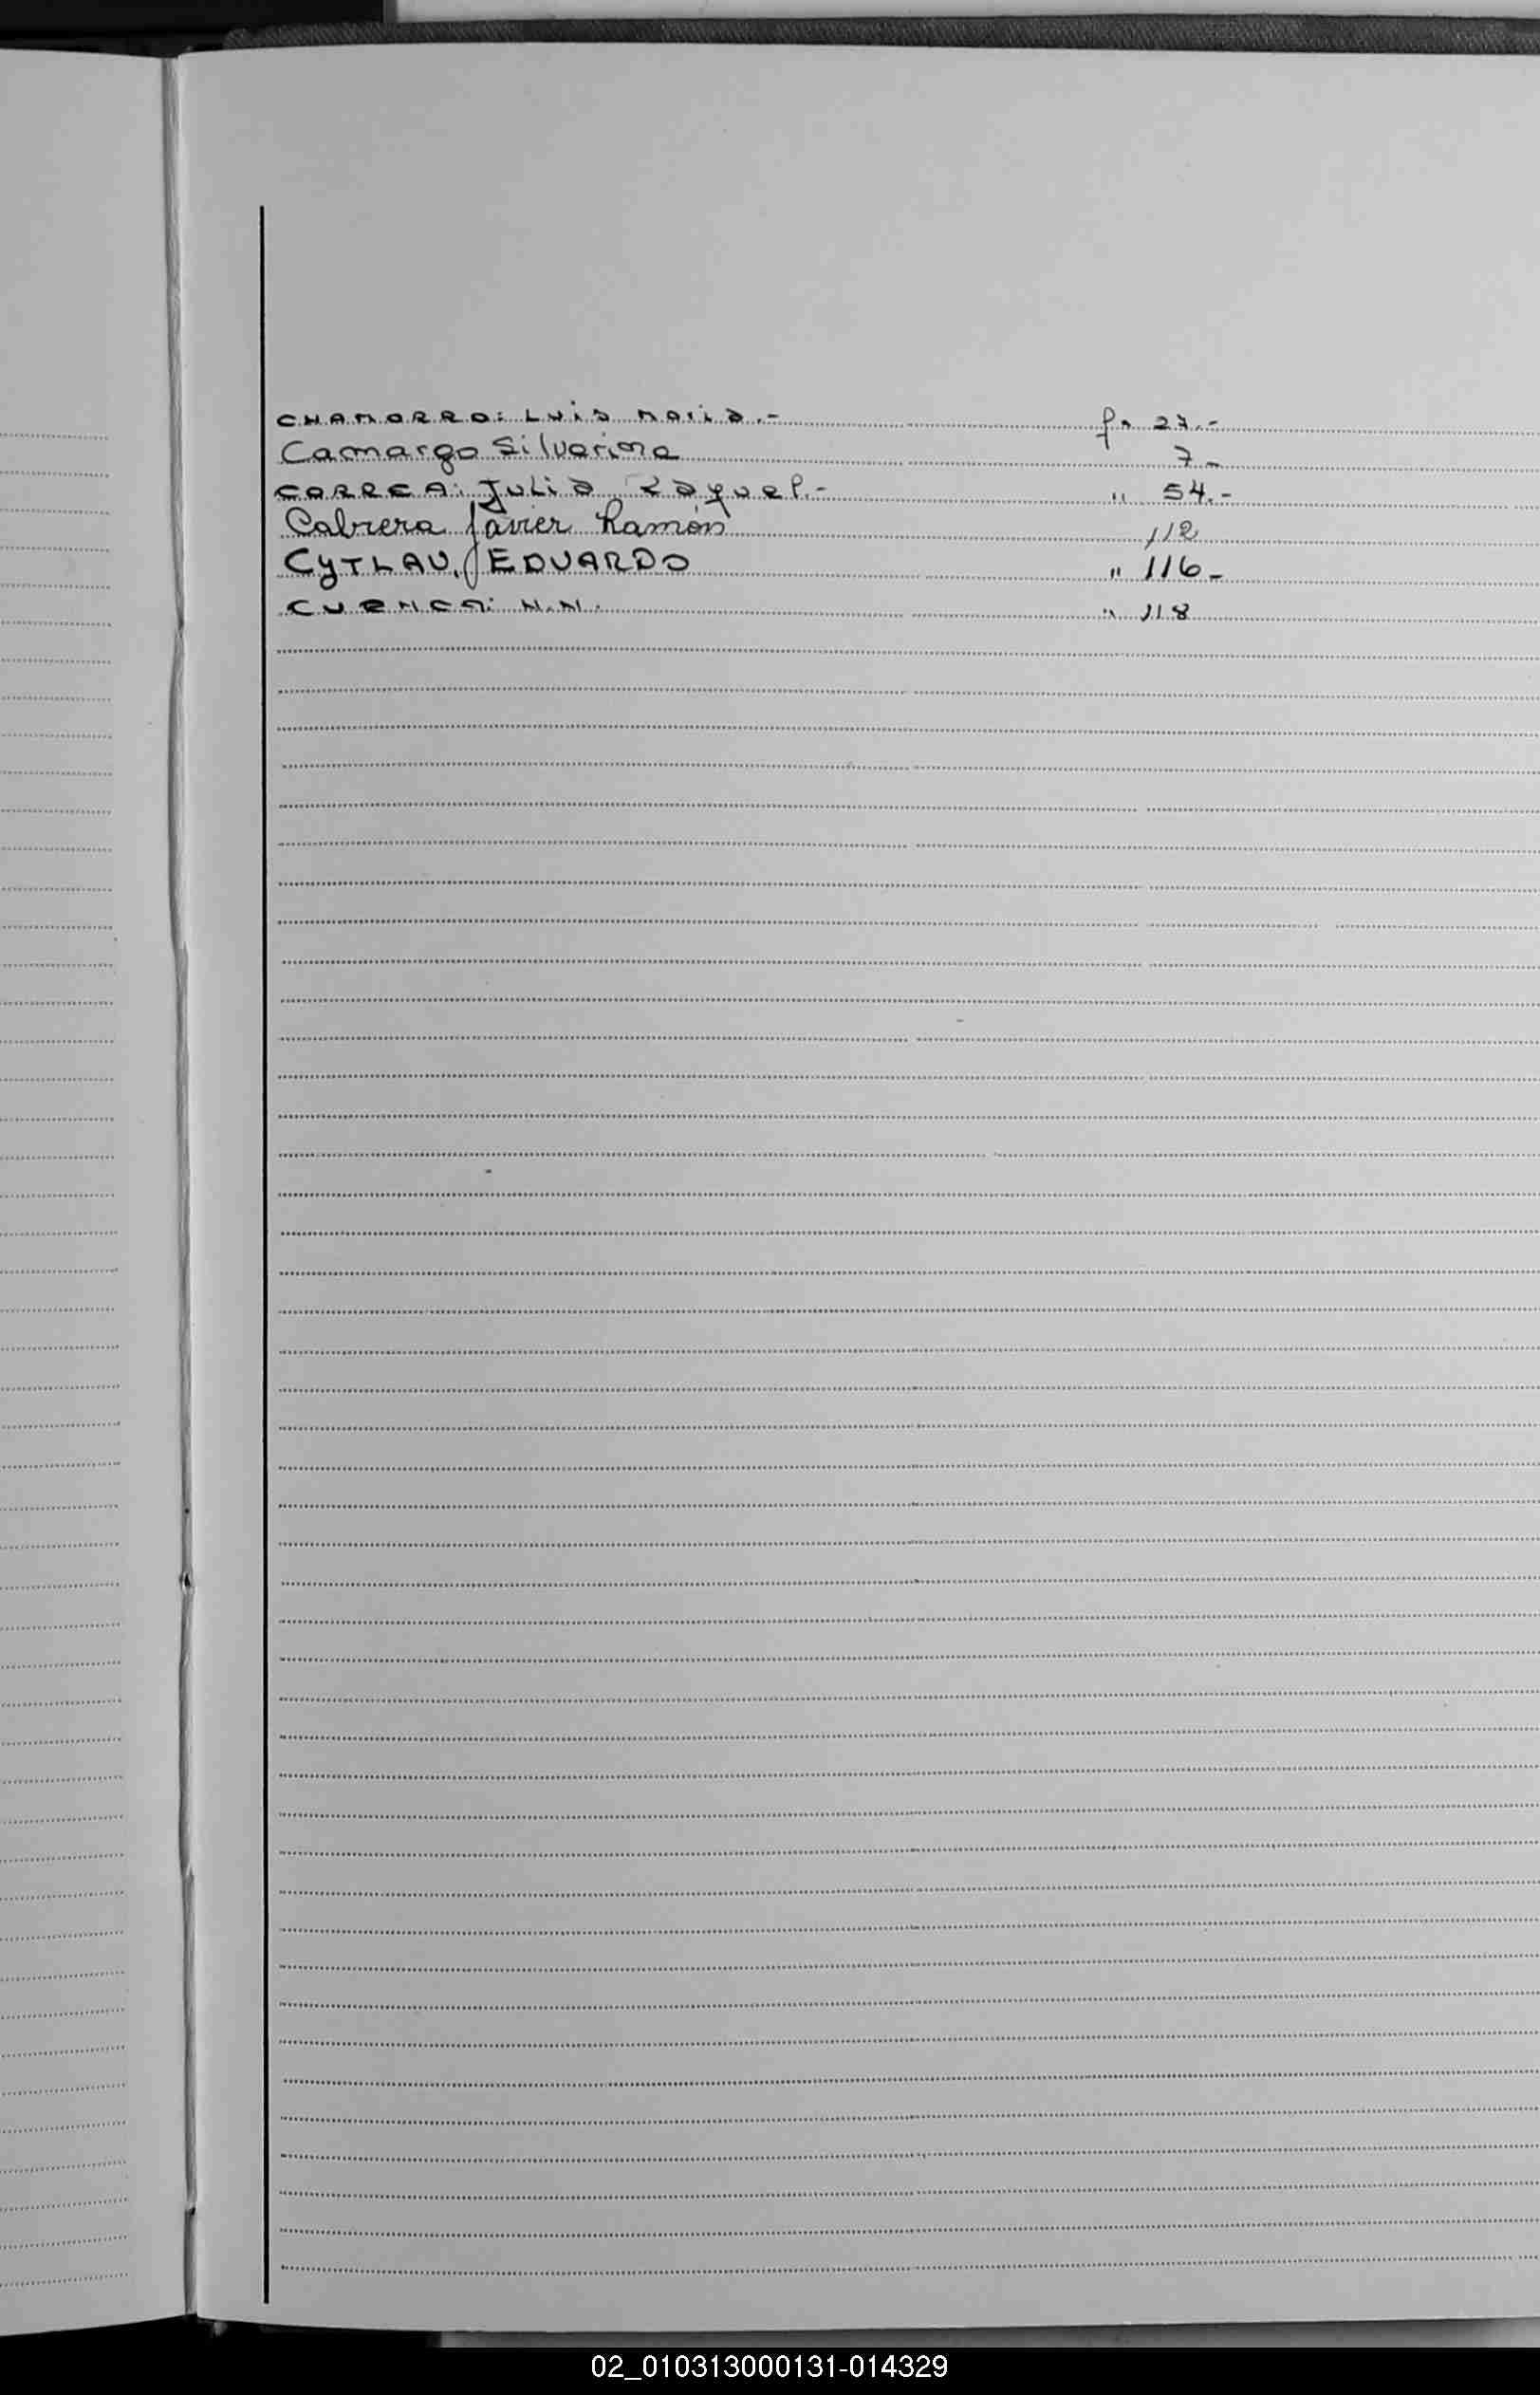 CHAMORRO: Luis Maria.- fº 27.-
Camargo Silverina 7-
CORREA: Julia Raquel.- " 54.-
Cabrera Javier Ramón 112
CYTLAU, EDUARDO " 116-
CUENCA: N.N. " 118
02_010313000131-014329